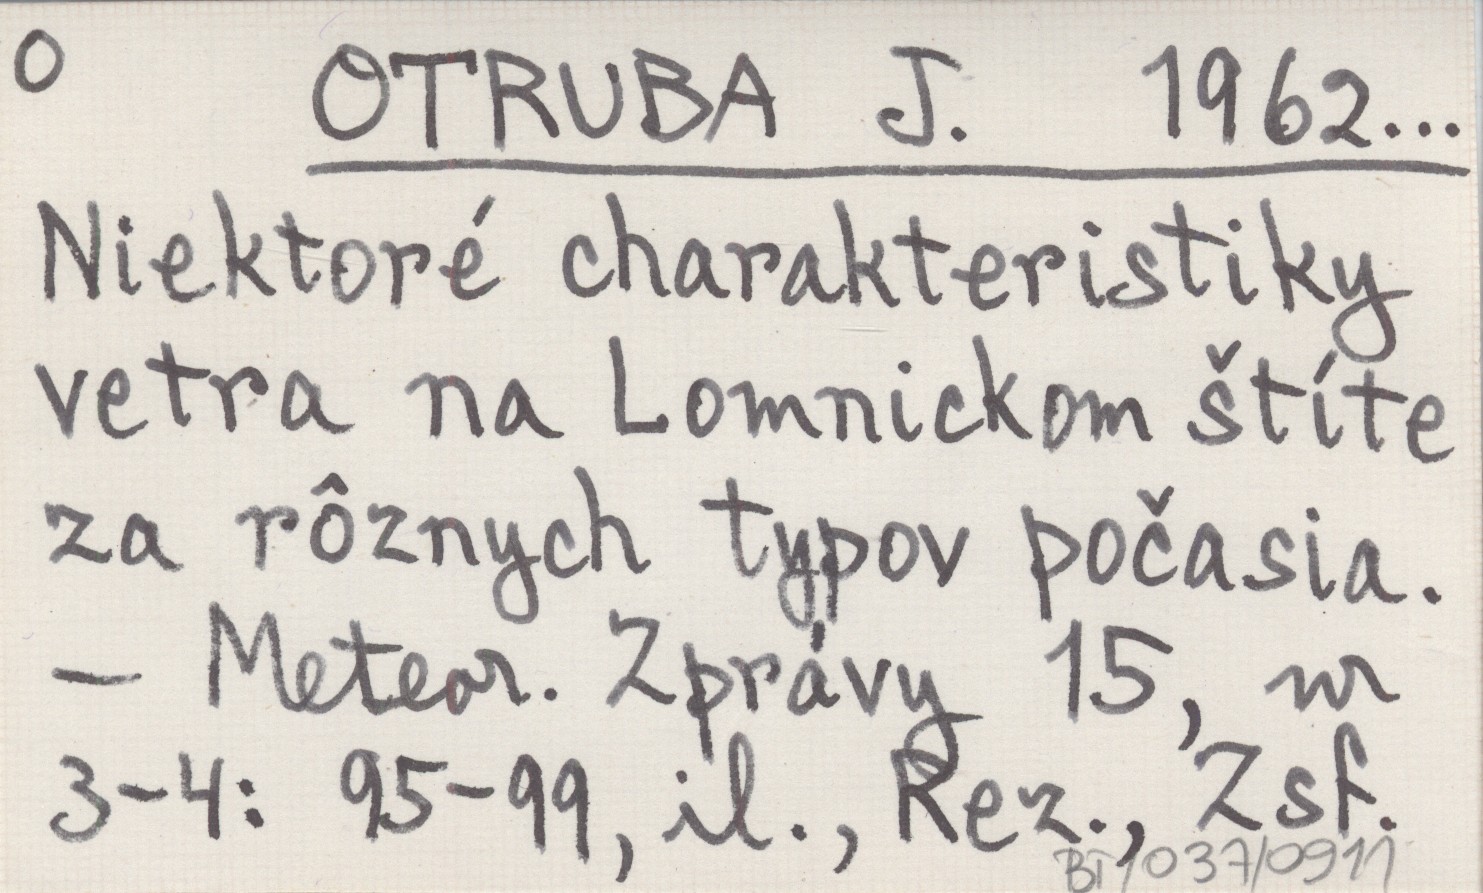 O OTRUBA J. 1962...
Niektoré charakteristiky
vetra na Lomnickom štíte
za rôznych typov počasia.
— Meteor. Zprávy 15, nr
3-4: 95-99, il., Rez., Zsf.
BT/037/0911